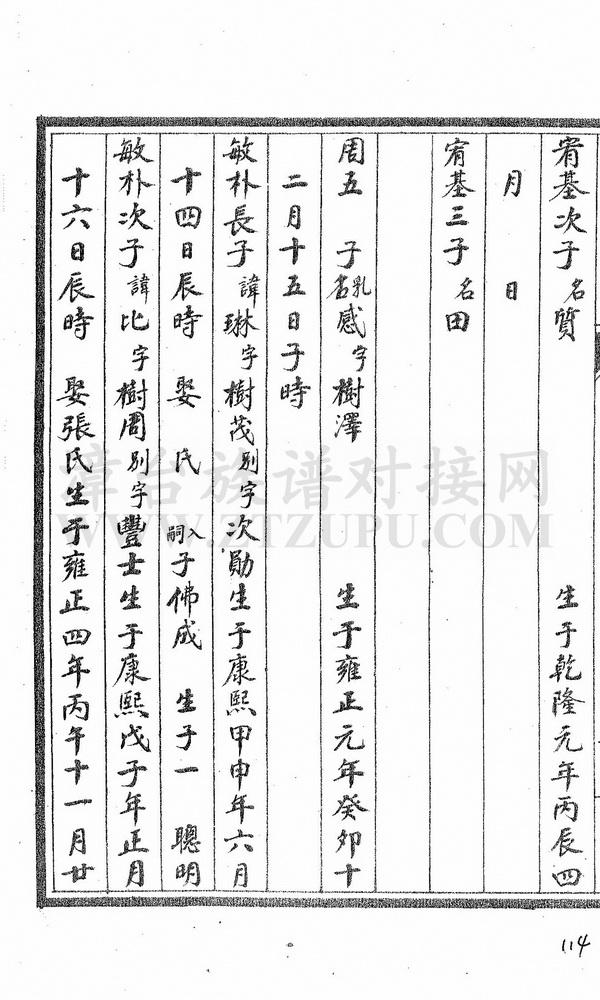 宥基次子 名質 生于乾隆元年丙辰四
月 日
宥基三子 名田
周五 子 乳名感 字樹澤 生于雍正元年癸卯十
二月十五日子時
敏朴長子 諱琳 字樹茂 別字次勛 生于康熙甲申年六月
十四日辰時 娶 氏 入嗣子佛成 生子一 聰明
敏朴次子 諱比 字樹周 別字豐士 生于康熙戊子年正月
十六日辰時 娶張氏生于雍正四年丙午十一月廿
章台族谱对接网
WWW.ZTZUPU.COM
114